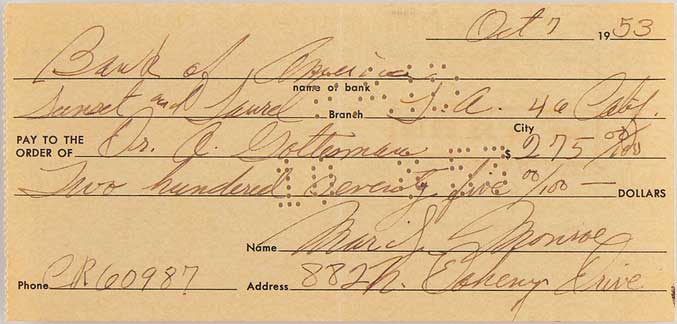 Oct 7 1953
Bank of America
name of bank
Sunset and Laurel Branch L.A. 46 Calif.
City
PAY TO THE
ORDER OF Dr. A. Gottesman $ 275 00/100
Two hundred seventy five 00/100 — DOLLARS
Name Marilyn Monroe
Phone CR60987 Address 882 N. Doheny Drive